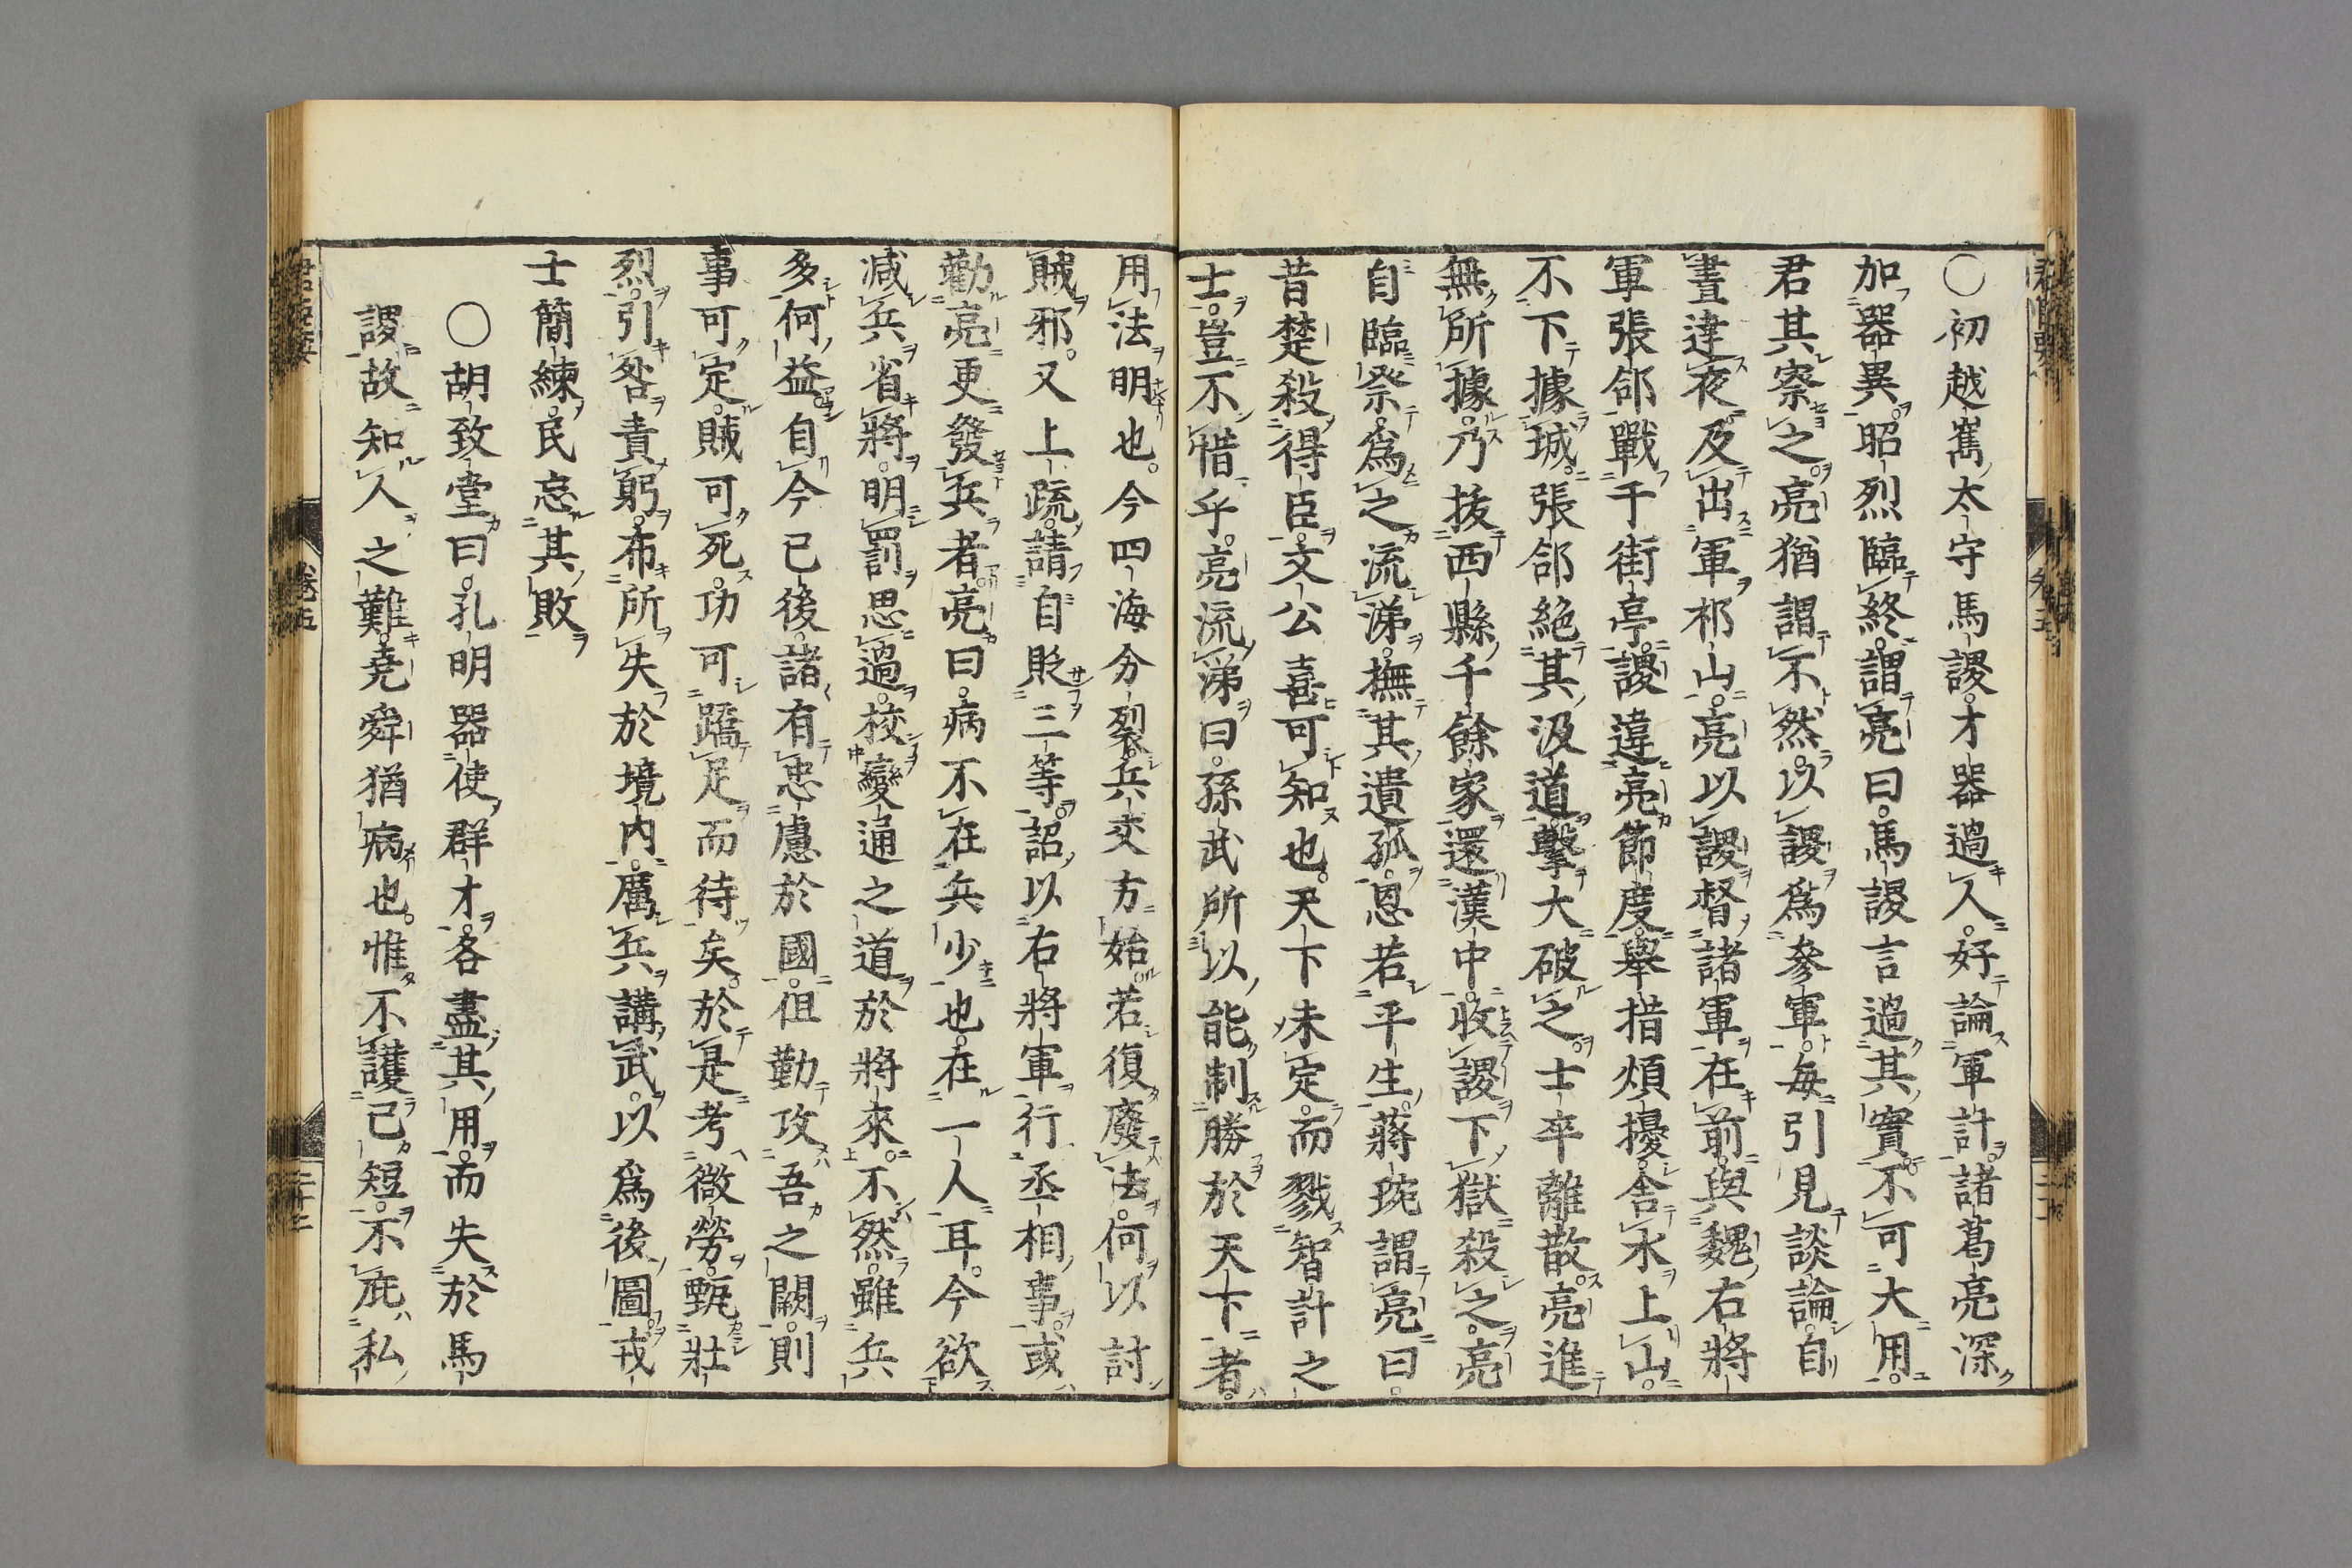 ○初越嶲太守馬謖才器過人好論軍計諸葛亮深
加器異昭烈臨終謂亮曰馬謖言過其實不可大用
君其察之亮猶謂不然以謖爲參軍每引見談論自
晝達夜及出軍祁山亮以謖督諸軍在前與魏右將
軍張郃戰于街亭謖違亮節度舉措煩擾舍水上山
不下據城張郃絶其汲道擊大破之士卒離散亮進
無所據乃拔西縣千餘家還漢中收謖下獄殺之亮
自臨祭爲之流涕撫其遺孤恩若平生蔣琬謂亮曰
昔楚殺得臣文公喜可知也天下未定而戮智計之
士豈不惜乎亮流涕曰孫武所以能制勝於天下者
用法明也今四海分裂兵交方始若復廢法何以討
賊邪又上疏請自貶三等詔以右將軍行丞相事或
勸亮更發兵者亮曰病不在兵少也在一人耳今欲
減兵省將明罰思過校變通之道於將來不然雖兵
多何益自今已後諸有忠慮於國但勤攻吾之闕則
事可定賊可死功可蹻足而待矣於是考微勞甄壯
烈引咎責躬布所失於境内厲兵講武以爲後圖戎
士簡練民忘其敗
○胡致堂曰孔明器使群才各盡其用而失於馬
謖故知人之難堯舜猶病也惟不護己短不庇私
卷五